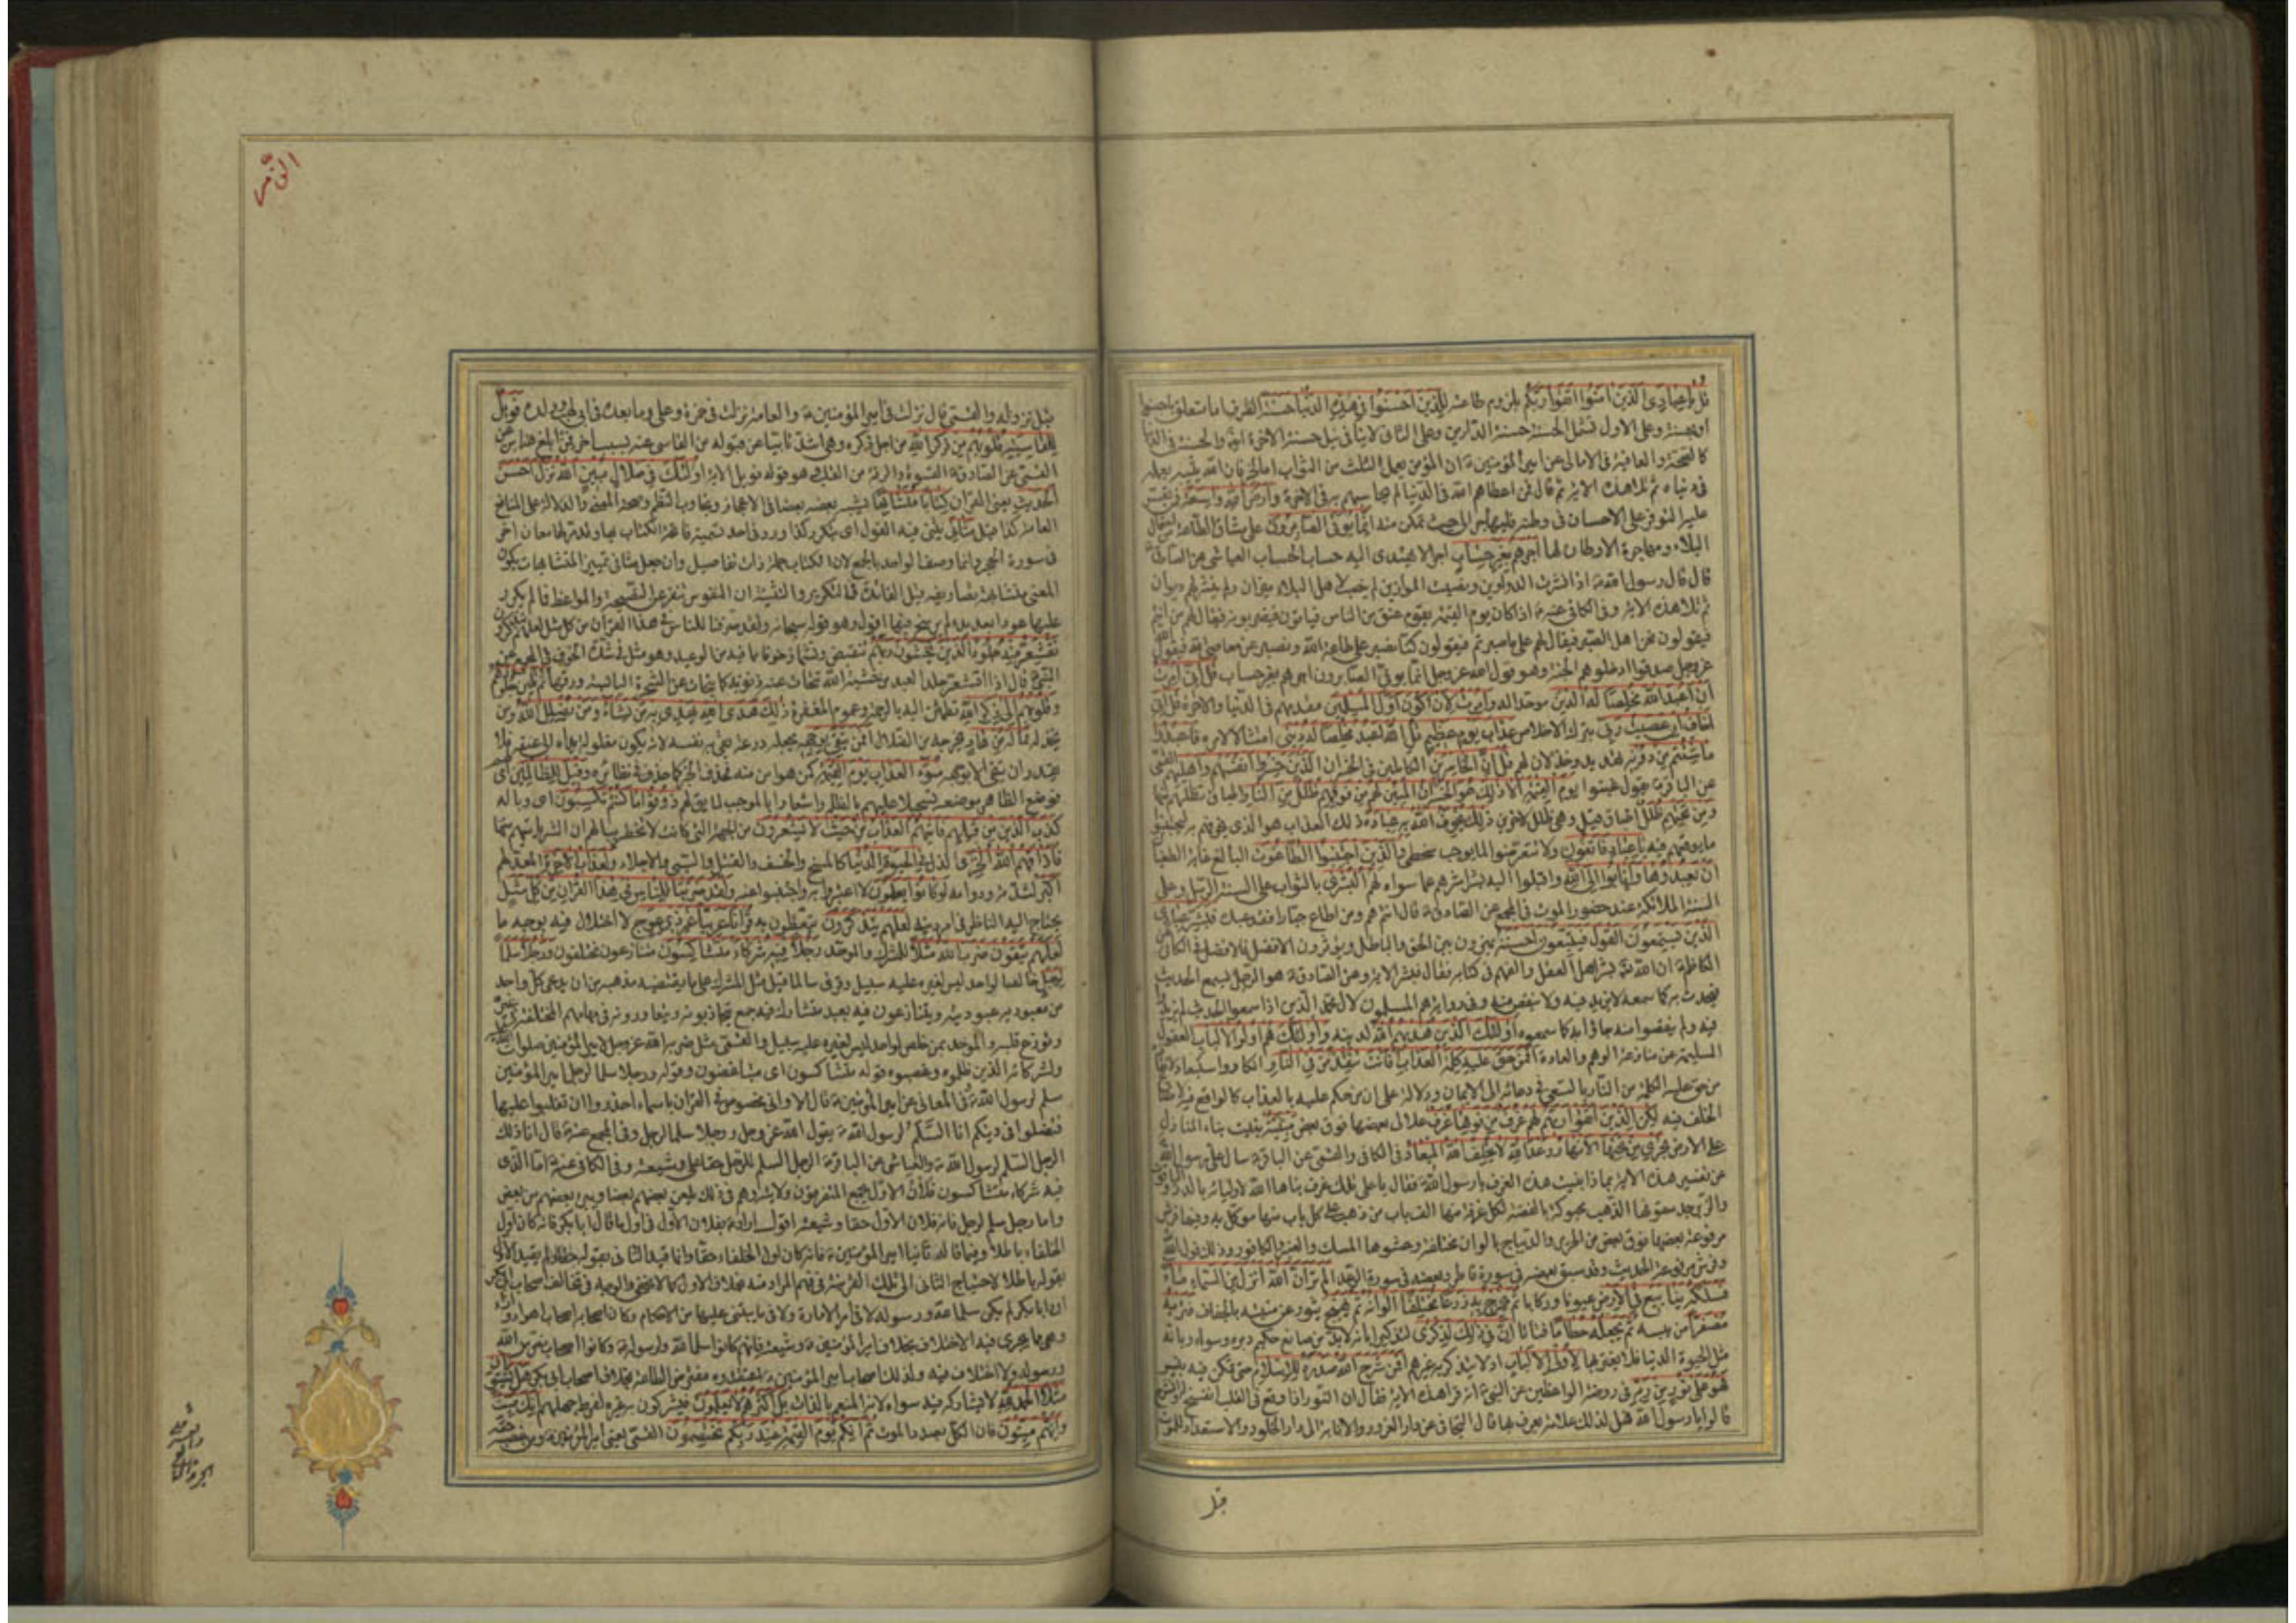 قل يا عبادى الذين امنوا اتقوا ربكم بلزوم طاعته للذين احسنوا فى هذه الدنيا حسنة الظرف اما متعلق باحسنوا
او بحسنة وعلى الاول تشمل الحسنة حسنة الدارين وعلى الثانى لا ينافى نيل حسنة الاخرة ايضا والحسنة فى الدنيا
كالصحة والعافية فى الامالى عن امير المؤمنين ان المؤمن يعمل لثلث من الثواب اما لخير فان الله يثيبه بعمله
فى دنياه ثم تلا هذه الاية ثم قال فمن اعطاهم الله فى الدنيا لم يحاسبهم به فى الاخرة وارض الله واسعة فمن تعسر
عليه التوفر على الاحسان فى وطنه فليهاجر الى حيث تمكن منه انما يوفى الصابرون على مشاق الطاعة من احتمال
البلاء ومهاجرة الاوطان لها اجرهم بغير حساب اجرا لا يهتدى اليه حساب الحساب العياشى عن الصادق
قال قال رسول الله اذا نشرت الدواوين ونصبت الموازين لم ينصب لاهل البلاء ميزان ولم ينشر لهم ديوان
ثم تلا هذه الاية وفى الكافى عنه اذا كان يوم القيمة يقوم عنق من الناس فياتون فيضربونه فيقال لهم من انتم
فيقولون نحن اهل الصبر فيقال لهم على ما صبرتم فيقولون كنا نصبر على طاعة الله ونصبر عن معاصى الله فيقول الله
عز وجل صدقوا ادخلوهم الجنة وهو قول الله عز وجل انما يوفى الصابرون اجرهم بغير حساب قل انى امرت
ان اعبد الله مخلصا له الدين موحدا له وامرت لان اكون اول المسلمين مقدمهم فى الدنيا والاخرة قل انى
اخاف ان عصيت ربى بترك الاخلاص عذاب يوم عظيم قل الله اعبد مخلصا له دينى امتثالا لامره فاعبدوا
ما شئتم من دونه تهديد وخذلان لهم قل ان الخاسرين الكاملين فى الخسران الذين خسروا انفسهم واهليهم القمى
عن الباقر يقول غبنوا يوم القيمة الا ذلك هو الخسران المبين لهم من فوقهم ظلل من النار اطباق تظلهم
ومن تحتهم ظلل اطباق قيل وهى ظلل لاخرين ذلك يخوف الله به عباده ذلك العذاب هو الذى يخوفهم به ليجتنبوا
ما يوقعهم فيه يا عباد فاتقون ولا تتعرضوا لما يوجب سخطى والذين اجتنبوا الطاغوت البالغ غاية الطغيان
ان يعبدوها وانابوا الى الله واقبلوا اليه بشراشرهم عما سواه لهم البشرى بالثواب على السنة الرسل وعلى
السنة الملائكة عند حضور الموت فى المجمع عن الصادق قال انتم هم ومن اطاع جبارا فقد عبده فبشر عبادى
الذين يستمعون القول فيتبعون احسنه يميزون بين الحق والباطل ويؤثرون الافضل فالافضل فى الكافى عن
الكاظم ان الله بشر اهل العقل والفهم فى كتابه فقال فبشر الاية وعن الصادق هو الرجل يسمع الحديث
فيحدث به كما سمعه لا يزيد فيه ولا ينقص منه وفى رواية هم المسلمون لآل محمد الذين اذا سمعوا الحديث لم يزيدوا
فيه ولم ينقصوا منه جاؤا به كما سمعوه اولئك الذين هديهم الله لدينه واولئك هم اولوا الالباب العقول
السليمة عن منازعة الوهم والعادة افمن حق عليه كلمة العذاب افانت تنقذ من فى النار انكار واستبعاد
من حق عليه الكلمة من النار بالسعى فى دعائه الى الايمان ودلالة على ان من حكم عليه بالعذاب كالواقع فيه
الخلف فيه لكن الذين اتقوا ربهم لهم غرف من فوقها غرف علالى بعضها فوق بعض مبنية بنيت بناء المنازل
على الارض تجرى من تحتها الانهار وعد الله لا يخلف الله الميعاد فى الكافى والقمى عن الباقر سأل على رسول الله
عن تفسير هذه الاية بماذا بنيت هذه الغرف يا رسول الله فقال يا على تلك غرف بناها الله لاوليائه بالدر والياقوت
والزبرجد سقوفها الذهب محبوكة بالفضة لكل غرفة منها الف باب من ذهب على كل باب منها ملك موكل به وفيها فرش
مرفوعة بعضها فوق بعض من الحرير والديباج بالوان مختلفة وحشوها المسك والعنبر والكافور وذلك قول الله
وفرش مرفوعة الحديث وقد سبق بعضه فى سورة فاطر وبعضه فى سورة الرعد الم تر ان الله انزل من السماء ماء
فسلكه ينابيع فى الارض عيونا وركايا ثم يخرج به زرعا مختلفا الوانه ثم يهيج يثور عن منبته بالجفاف فتريه
مصفرا من يبسه ثم يجعله حطاما فتاتا ان فى ذلك لذكرى لتذكيرا بانه لا بد من صانع حكيم دبره وسواه وبانه
مثل الحيوة الدنيا فلا يغتر بها لاولى الالباب اذ لا يتذكر به غيرهم افمن شرح الله صدره للاسلام حتى تمكن فيه بيسر
فهو على نور من ربه فى روضة الواعظين عن النبى انه قرأ هذه الاية فقال ان النور اذا وقع فى القلب انفسح له وانشرح
قالوا يا رسول الله فهل لذلك علامة يعرف بها قال التجافى عن دار الغرور والانابة الى دار الخلود والاستعداد للموت
قبل
الزمر
قبل نزوله والقمى قال نزلت فى امير المؤمنين والعامة نزلت فى حمزة وعلى وما بعده فى ابى لهب وولده فويل
للقاسية قلوبهم من ذكر الله من اجل ذكره وهو اشد تابيا عن قبوله من القاسى عنه بسبب اخر فمن ابلغ هنا من عن
القمى عن الصادق القسوة والرقة من القلب هو قوله فويل الاية اولئك فى ضلال مبين الله نزل احسن
الحديث يعنى القران كتابا متشابها يشبه بعضه بعضا فى الاعجاز وتجاوب النظم وصحة المعنى والدلالة على المنافع
العامة كذا قيل مثانى يثنى فيه القول اى يتكرر كذا ورد فى احد تسمية فاتحة الكتاب بها وقد مر لها معان اخر
فى سورة الحجر وانما وصف الواحد بالجمع لان الكتاب جملة ذات تفاصيل وان جعل مثانى تمييز المتشابها يكون
المعنى متشابهة تصاريفه قيل الفائدة فى التكرير والتثنية ان النفوس تنفر عن النصيحة والمواعظ فما لم يكرر
عليها عودا بعد بدء لم يرسخ فيها اقول وهو قوله سبحانه ولقد صرفنا للناس فى هذا القرآن من كل مثل لعلهم يتذكرون
تقشعر منه جلود الذين يخشون ربهم تنقبض وتشمأز خوفا مما فيه من الوعيد وهو مثل فى شدة الخوف فى المجمع عن
النبى قال اذا اقشعر جلد العبد من خشية الله تتحات عنه ذنوبه كما يتحات عن الشجرة اليابسة ورقها ثم تلين جلودهم
وقلوبهم الى ذكر الله تطمئن اليه بالرحمة وعموم المغفرة ذلك هدى الله يهدى به من يشاء ومن يضلل الله ومن
يخذله فما له من هاد يخرجه من الضلال افمن يتقى بوجهه يجعله درعه يتقى به نفسه لانه يكون مغلولة يداه الى عنقه فلا
يقدر ان يتقى الا بوجهه سوء العذاب يوم القيمة كمن هو امن منه فحذف الخبر كما حذف فى نظائره وقيل للظالمين اى
فوضع الظاهر موضعه تسجيلا عليهم بالظلم واشعارا بالموجب لما يق لهم ذوقوا ما كنتم تكسبون اى وباله
كذب الذين من قبلهم فاتيهم العذاب من حيث لا يشعرون من الجهة التى كانت لا تخطر ببالهم ان الشر ياتيهم منها
فاذاقهم الله الخزى الذل فى الحيوة الدنيا كالمسخ والخسف والقتل والسبى والاجلاء ولعذاب الاخرة المعد لهم
اكبر لشدته ودوامه لو كانوا يعلمون لاعتبروا به واجتنبوا عنه ولقد ضربنا للناس فى هذا القران من كل مثل
يحتاج اليه الناظر فى امر دينه لعلهم يتذكرون يتعظون به قرآنا عربيا غير ذى عوج لا اختلال فيه بوجه ما
لعلهم يتقون ضرب الله مثلا للمشرك والموحد رجلا فيه شركاء متشاكسون متنازعون مختلفون ورجلا سلما
لرجل خالصا لواحد ليس لغيره عليه سبيل وقرئ سالما قيل مثل المشرك على ما يقتضيه مذهبه من ان يدعى كل واحد
من معبوديه عبوديته ويتنازعون فيه بعبد متشارك فيه جمع يتجاذبونه ويتعاورونه فى مهامهم المختلفة فى تحيره
وتوزع قلبه والموحد بمن خلص لواحد ليس لغيره عليه سبيل والقمى مثل ضربه الله عز وجل لامير المؤمنين صلوات الله عليه
ولشركائه الذين ظلموه وغصبوه قوله متشاكسون اى متباغضون وقوله ورجلا سلما لرجل امير المؤمنين
سلم لرسول الله وفى المعانى عن امير المؤمنين قال الا وانى مخصوص فى القران باسماء احذروا ان تغلبوا عليها
فتضلوا فى دينكم انا السلم لرسول الله يقول الله عز وجل ورجلا سلما لرجل وفى المجمع عنه قال انا ذلك
الرجل السلم لرسول الله والعياشى عن الباقر الرجل السلم للرجل حقا على وشيعته وفى الكافى عنه اما الذى
فيه شركاء متشاكسون فلان الاول يجمع المتفرقون ولايته وهم فى ذلك يلعن بعضهم بعضا ويبرئ بعضهم من بعض
واما رجل سلم لرجل فانه فلان الاول حقا وشيعته اقول اراد بفلان الاول فى اول ما قال ابا بكر فانه كان اول
الخلفاء باطلا وفيما قاله ثانيا امير المؤمنين فانه كان اول الخلفاء حقا وانما قيد الثانى بقوله حقا ولم يقيد الاول
بقوله باطلا لاحتياج الثانى الى تلك القرينة فى فهم المراد منه بخلاف الاول كما لا يخفى والوجه فى تخالف اصحاب ابى بكر
ان ابا بكر لم يكن سلما لله ورسوله لا فى امر الامارة ولا فيما يبتنى عليها من الاحكام وكان اصحابه اصحاب اهواء واراء
وهى مما يجرى فيه الاختلاف بخلاف امير المؤمنين وشيعته فانهم كانوا سلما لله ولرسوله وكانوا اصحاب نص من الله
ورسوله ولا اختلاف فيه ولذلك اصحاب امير المؤمنين يعتقدوه مفترض الطاعة بخلاف اصحاب ابى بكر هل يستويان
مثلا الحمد لله لا يشاركه فيه سواه لانه المنعم بالذات بل اكثرهم لا يعلمون فيشركون به غيره لفرط جهلهم انك ميت
وانهم ميتون فان الكل بصدد الموت ثم انكم يوم القيمة عند ربكم تختصمون القمى يعنى امير المؤمنين ومن غصبه حقه